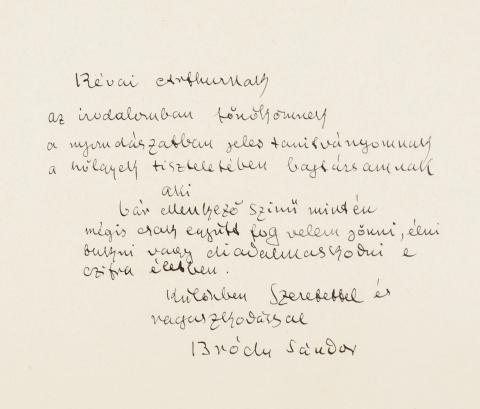 Révai Arthurnak
az irodalomban főnökömnek
a nyomdászatban jeles tanitványomnak
a hölgyek tiszteletében bajtársamnak
aki
bár ellenkező szinű mint én
mégis csak együtt fog velem jönni, élni
bukni vagy diadalmaskodni e
czifra életben.
Különben Szeretettel és
ragaszkodással
Bródy Sándor